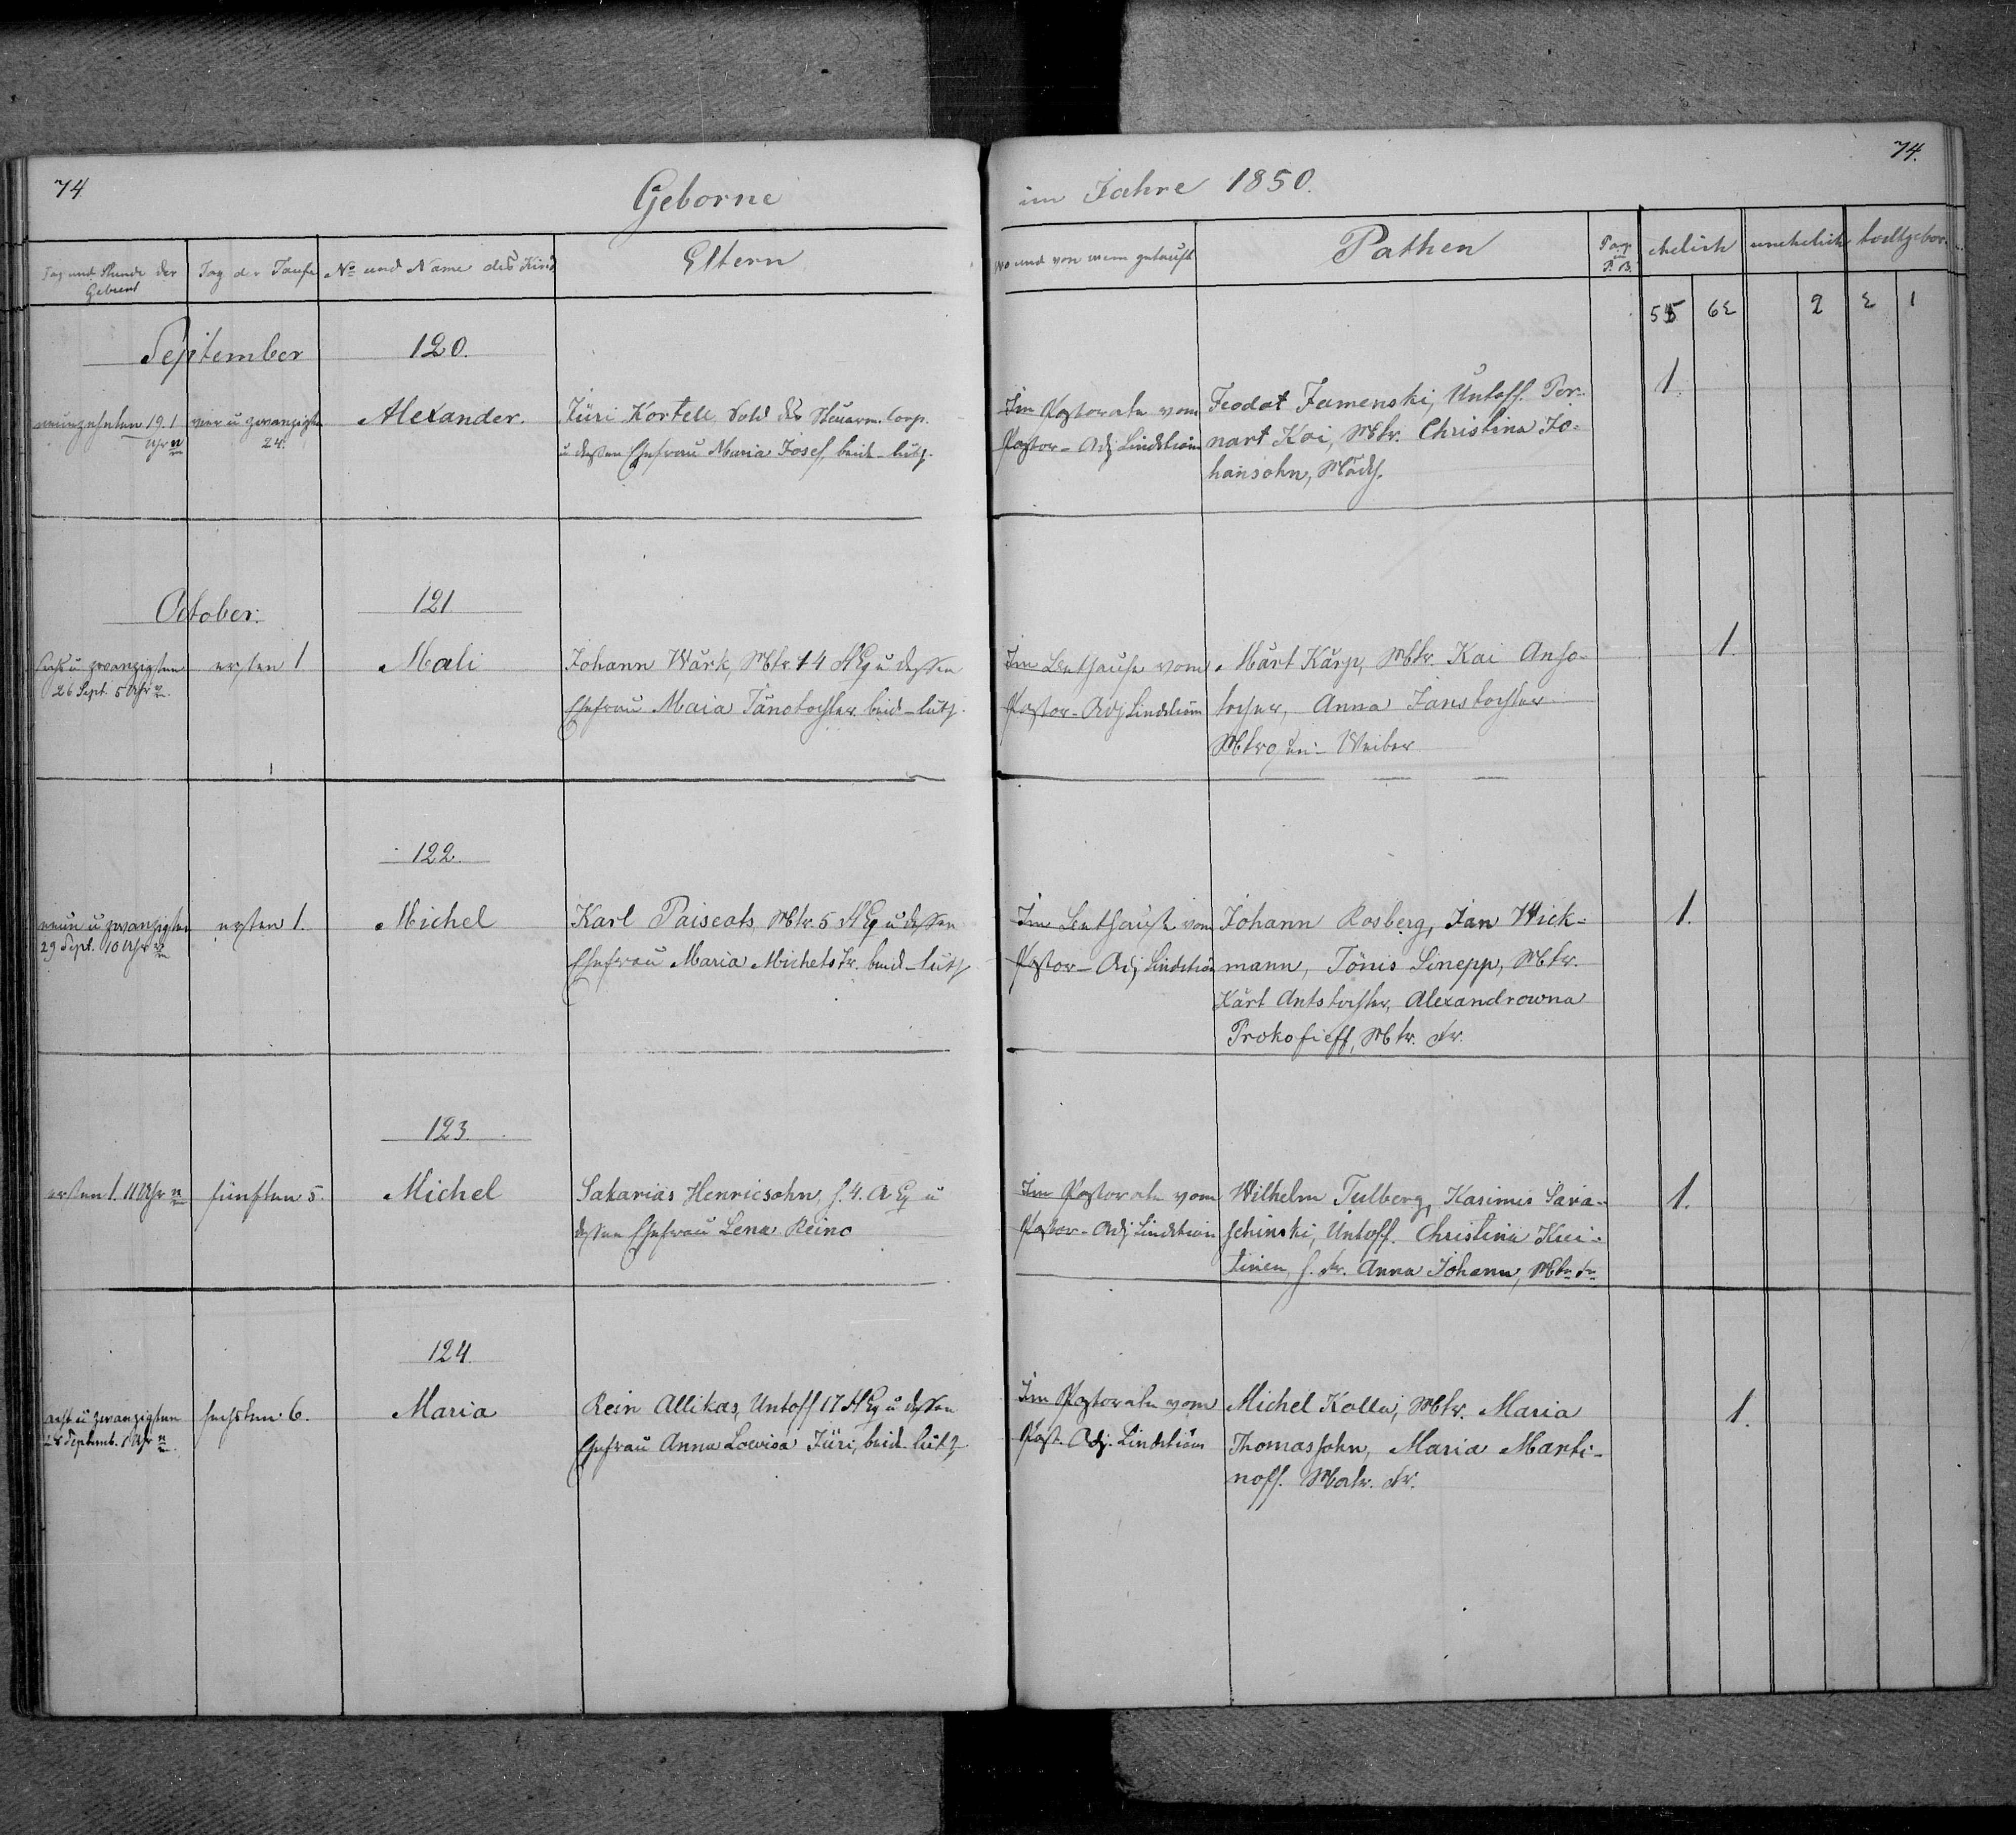 74
74.
Geborne
im Jahre 1850.
Tag und Stunde der Geburt
Tag der Taufe
No und Name des Kind
Eltern
Wo und von wem getauft
Pathen
Pag. P. B.
ehelich
unehelich
todtgebor.
62
2
1
September
120.
neunzehnten 19. 1
Uhr n
vier u zwanzigste
24.
Alexander.
Jüri Kortell Sold des
u dessen Ehefrau Maria Josef, beide luth.
Im Pastorate vom
Pastor-Adj Lindström
Feodat Jamenski, Untoff.
nart Koi, Mtr. Christina Jo-
hansohn, Mädch.
1.
October.
121
sechs u zwanzigsten
26 Sept. 5 Uhr
ersten 1
Mali
Johann Wärk, Mtr. 14 Eq u dessen
Ehefrau Maia Tänotochter beid-luth.
Im Bethause vom
Pastor-Adj Lindström
Märt Kärp, Mtr. Kai
tochter, Anna Janstochter
Weiber
1.
122.
neun u zwanzigsten
29 Sept. 10 Uhr
ersten 1.
Michel
Karl Paiscots, Mtr. 5 Eq u dessen
Ehefrau Maria Michelstr. beid-luth
Im Bethause vom
Pastor-Adj Lindström
Johann Rosberg, Jan Wick-
mann, Tönis Sinepp, Mtr.
Kärt Antstochter, Alexandrowna
Prokofieff, Mtr. fr.
1.
123.
ersten 1. 11 Uhr n
fünften 5.
Michel
Sakarias Henricsohn, 4. Eq u
dessen Ehefrau Lena Reino
Im Pastorate vom
Pastor-Adj Lindström
Wilhelm Tulberg, Kasimis Sava-
schinski, Untoff. Christina
tinen, fr. Anna Johann, Mtr. fr
1.
124.
acht u zwanzigsten
28 Septemb. 1 Uhr n
sechsten 6.
Maria
Rein Allikas, Untoff 17 Eq u dessen
Ehefrau Anna Lowisa Jüri, beid-luth
Im Pastorate vom
Past. Adj. Lindström
Michel Kolla, Mtr. Maria
Thomassohn, Maria Marti-
noff. Matr. fr.
1.